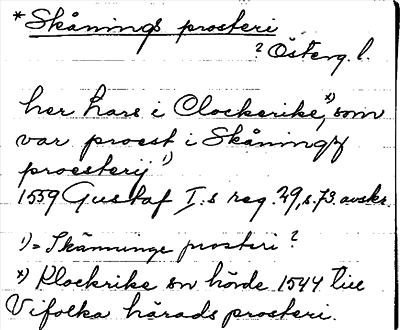 * Skånings prosteri
? Österg. l.
her Lars i Clockerike, *) som
var proest i Skåningz
proesterij 1)
1559 Gustaf I:s reg. 29, s. 73. avskr.
1) = Skänninge prosteri?
*) Klockrike sn hörde 1544 till
Vifolka härads prosteri.